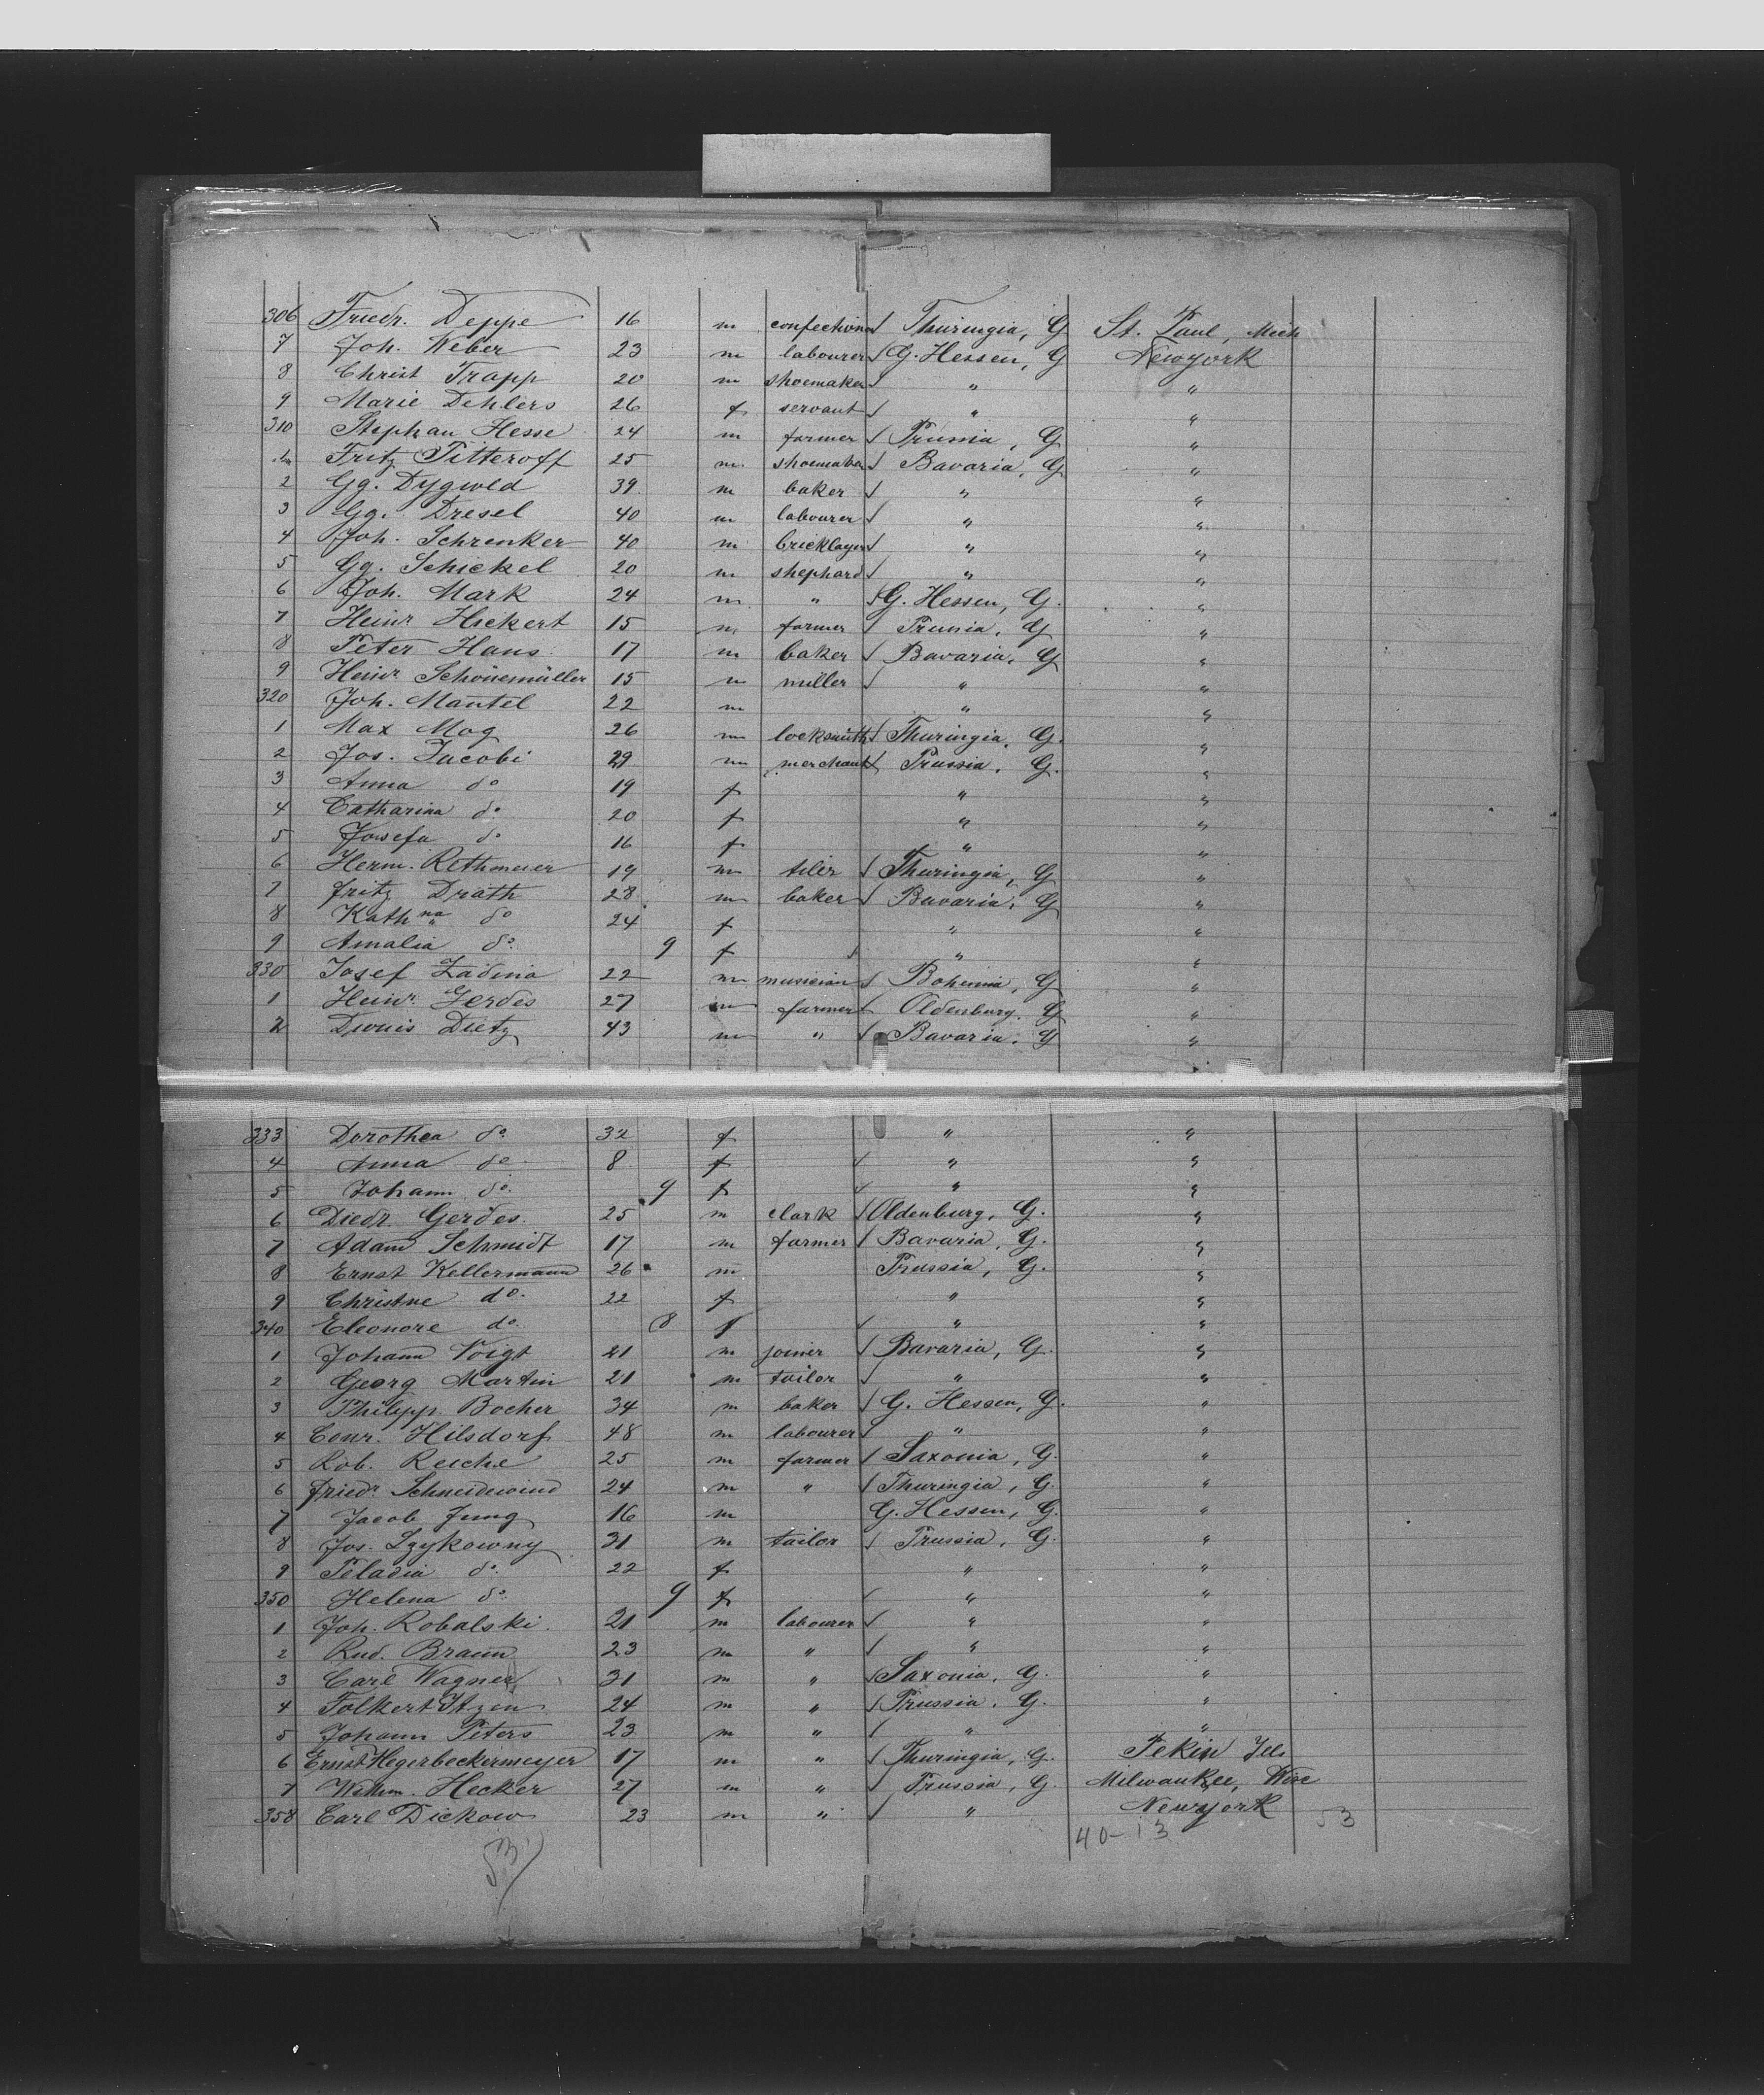 306 Friedr. Deppe 16 m confectioner Thuringia, G St. Paul, Mich
7 Joh. Weber 23 m labourer G. Hessen, G Newyork
8 Christ Trapp 20 m shoemaker " "
9 Marie Dehlers 26 f servant " "
310 Stephan Hesse 24 m farmer Prussia, G "
Fritz Pitteroff 25 m shoemaker Bavaria, G "
2 Gg. Dygwed 39 m baker " "
3 Gg. Dresel 40 m labourer " "
4 Joh. Schrenker 40 m bricklayer " "
5 Gg. Schickel 20 m shephard " "
6 Joh. Mark 24 m " G. Hessen, G. "
7 Heinr Hickert 15 m farmer Prussia, G "
8 Peter Hans 17 m baker Bavaria, G "
9 Heinr Schönemüller 15 m miller " "
320 Joh. Mantel 22 m " "
1 Max Mog 26 m locksmith Thuringia, G. "
2 Jos. Jacobi 29 m merchant Prussia, G. "
3 Anna do 19 f " "
4 Catharina do 20 f " "
5 Josefa do 16 f " "
6 Herm. Rethmeier 19 m tiler Thuringia, G "
7 Fritz Drath 28 m baker Bavaria, G "
8 Kathna do 24 f " "
9 Amalia do 9 f " "
330 Josef Zadina 22 m musician Bohemia, G "
1 Heinr. Gerdes 27 m farmer Oldenburg, G "
2 Dionis Dietz 43 m " Bavaria, G "
333 Dorothea do 32 f " "
4 Anna do 8 f " "
5 Johann do. 9 f " "
6 Diedr. Gerdes 25 m clark Oldenburg, G. "
7 Adam Schmidt 17 m farmer Bavaria, G. "
8 Ernst Kellermann 26 m Prussia, G. "
9 Christne do. 22 f " "
340 Eleonore do. 8 f " "
1 Johann Voigt 21 m joiner Bavaria, G. "
2 Georg Martin 21 m tailor " "
3 Philipp Bocher 34 m baker G. Hessen, G. "
4 Conr. Hilsdorf 48 m labourer " "
5 Rob. Reiche 25 m farmer Saxonia, G. "
6 Friedr Schneidewind 24 m " Thuringia, G. "
7 Jacob Jung 16 m G. Hessen, G. "
8 Jos. Szykowny 31 m tailor Prussia, G. "
9 Peladia do 22 f " "
350 Helena do 9 f " "
1 Joh. Robalski 21 m labourer " "
2 Rud. Braun 23 m " " "
3 Carl Wagner 31 m " Saxonia, G. "
4 Folkert Itzen 24 m " Prussia, G. "
5 Johann Peters 23 m " " "
6 Ernst Hegerbeckermeyer 17 m " Thuringia, G. Pekin Ills
7 Wilhm. Hecker 27 m " Prussia, G. Milwaukee, Wisc
358 Carl Dickow 23 m " " Newyork
40-13 53
53